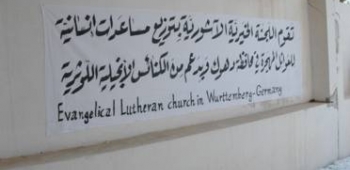 تقوم اللجنة الخيرية الآشورية بتوزيع مساعدات انسانية
للعوائل المهجرة في محافظة دهوك وبدعم من الكنائس الانجيلية اللوثرية
Evangelical Lutheran church in Wurttemberg-Germany